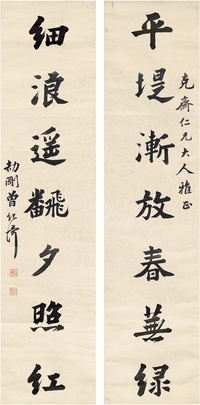 平堤漸放春蕪綠
克齋仁兄大人雅正
細浪遥翻夕照紅
劼剛曾紀澤